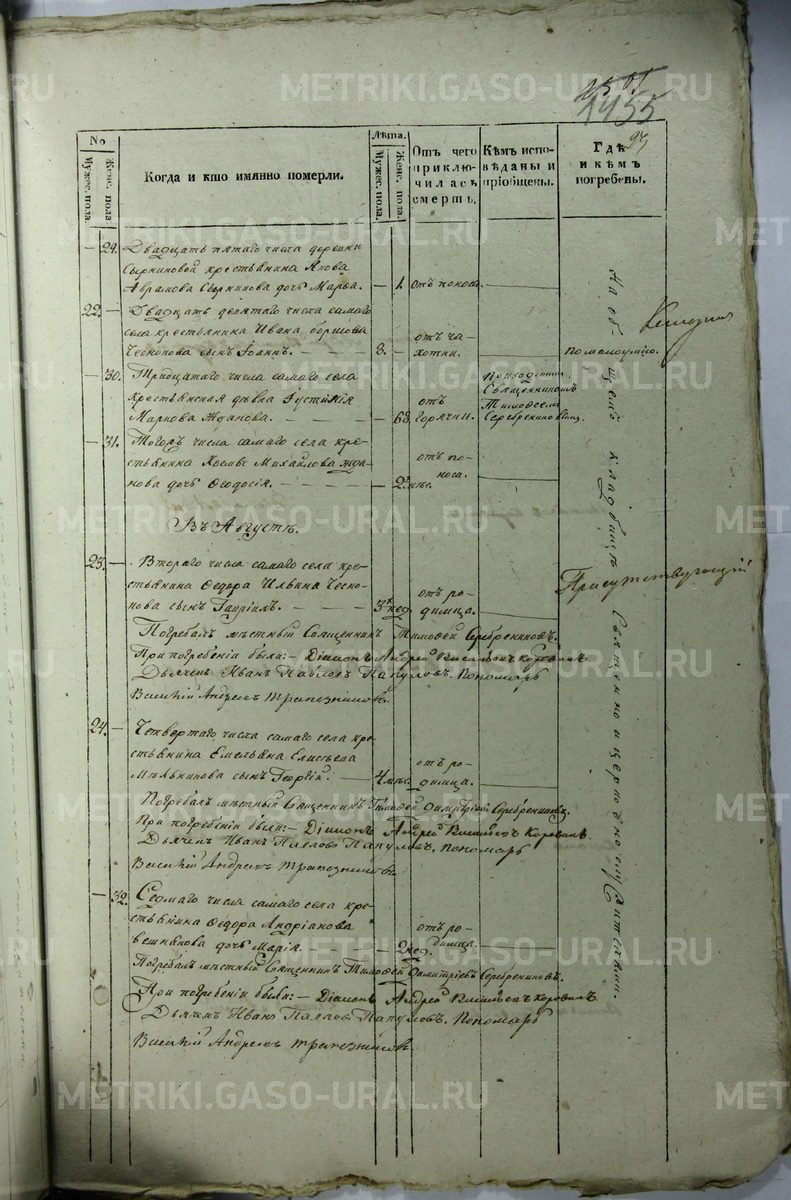 1455
93
№
Мужес. пола
Женс. пола
Когда и кто имянно померли.
Лѣта.
Мужес. пола
Женс. пола
Отъ чего приключилась смерть.
Кѣмъ исповѣданы и пріобщены.
Гдѣ и кѣмъ погребены.
— 29. Двадцать пятаго числа деревни
крестьянина
Аврамова дочь Марѳа. — 1. отъ поноса.
22. — Двадцать девятаго числа самаго
села крестьянина Ивана
сынъ Іоаннъ. — 8. — отъ чахотки. по малоумію.
— 30. Тридцатаго числа самаго села
крестьянская дѣвка Іустинія
Маркова Жданова. — 68. отъ горячки. Приходскимъ Священникомъ Тимоѳеемъ Серебренниковымъ.
— 31. Тогожъ числа самаго села кре-
стьянина Козмы Михайлова Жда-
нова дочь Ѳеодосія. — 2 мѣс. отъ поноса.
Въ Августѣ.
23. — Втораго числа самаго села кре-
стьянина Ѳедора Ильина
сынъ Гавріилъ. — 3 нед. отъ родимца.
Погребалъ мѣстный Священникъ Тимоѳей Серебренниковъ.
При погребеніи были: — Діаконъ Андрей
Дьячекъ Иванъ Павловъ Папуловъ. Пономарь
Василій Андреевъ Трапезниковъ.
24. — Четвертаго числа самаго села кре-
стьянина Емельяна Елисѣева
Мѣльникова сынъ Георгій. — 4 мѣс. отъ родимца.
Погребалъ мѣстный Священникъ Тимоѳей Димитріевъ Серебренниковъ.
При погребеніи были: — Діаконъ Андрей
Дьячекъ Иванъ Павловъ Папуловъ. Пономарь
Василій Андреевъ Трапезниковъ.
— 32. Седмаго числа самаго села кре-
стьянина Ѳедора Андріанова
Вешнякова дочь Марія. — 2 нед. отъ родимца.
Погребалъ мѣстный Священникъ Тимоѳей Димитріевъ Серебренниковъ.
При погребеніи были: — Діаконъ Андрей
Дьячекъ Иванъ Павловъ Папуловъ. Пономарь
Василій Андреевъ Трапезниковъ.
На общемъ кладбищѣ Священноцерковнослужителями.
Присутствующій
METRIKI.GASO-URAL.RU